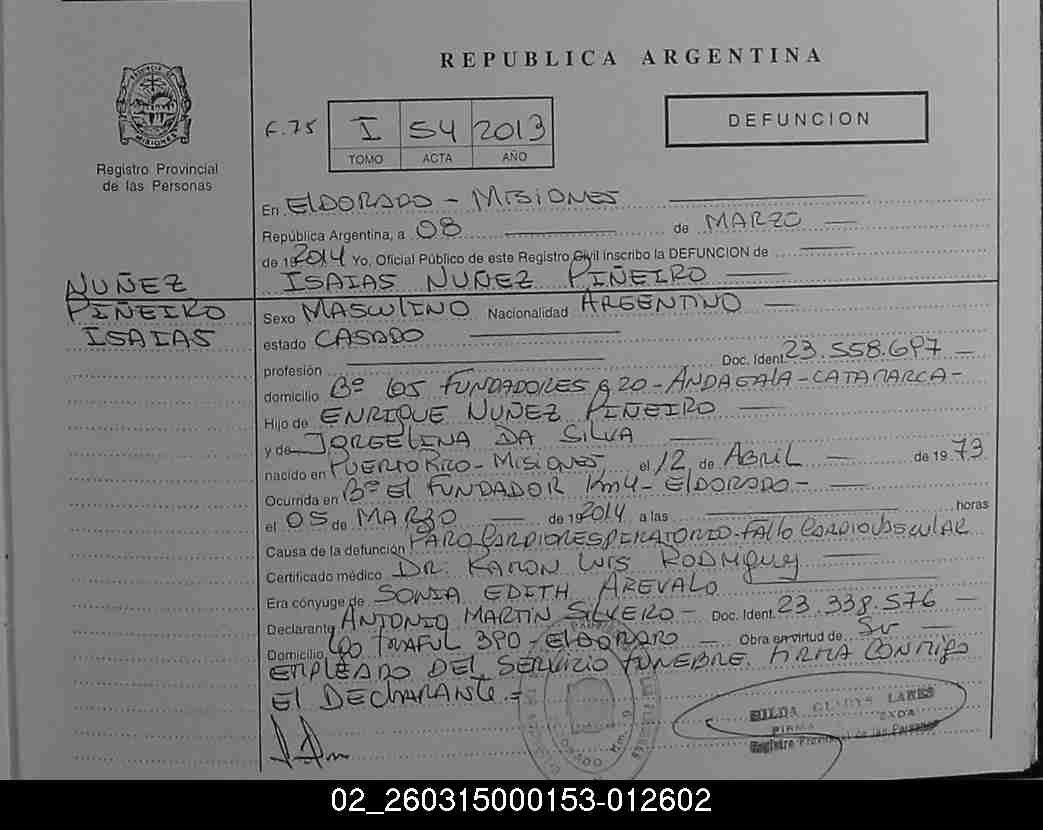 REPUBLICA ARGENTINA
Registro Provincial
de las Personas
F. 75 I 54 2013
TOMO ACTA AÑO
DEFUNCION
En ElDORADO - MISIONES
República Argentina, a 08 de MARZO
de 19 2014 Yo, Oficial Público de este Registro Civil inscribo la DEFUNCION de
ISAIAS NUÑEZ PIÑEIRO
NUÑEZ
PIÑEIRO
ISAIAS
Sexo MASCULINO Nacionalidad ARGENTINO
estado CASADO
profesión Doc. Ident. 23.558.697
domicilio Bº LOS FUNDADORES 920 - ANDAGALA - CATAMARCA -
Hijo de ENRIQUE NUÑEZ PIÑEIRO
y de JORGELINA DA SILVA
nacido en PUERTO RICO - MISIONES, el 12 de ABRIL de 19 73
Ocurrida en Bº El FUNDADOR Km4 - ElDORADO -
el 05 de MARZO de 19 2014 a las horas
Causa de la defunción PARO CARDIORESPIRATORIO - FALLO CARDIOVASCULAR
Certificado médico DR. RAMON LUIS RODRIGUEZ
Era cónyuge de SONIA EDITH AREVALO
Declarante ANTONIO MARTIN SILVERO - Doc. Ident. 23.338.576
Domicilio TRAFUL 390 - ElDORADO - Obra en virtud de Su
EMPLEADO DEL SERVICIO FUNEBRE. FIRMA CONMIGO
El DECLARANTE =
HILDA GLADYS LAWES
Registro Provincial de las Personas
02_260315000153-012602